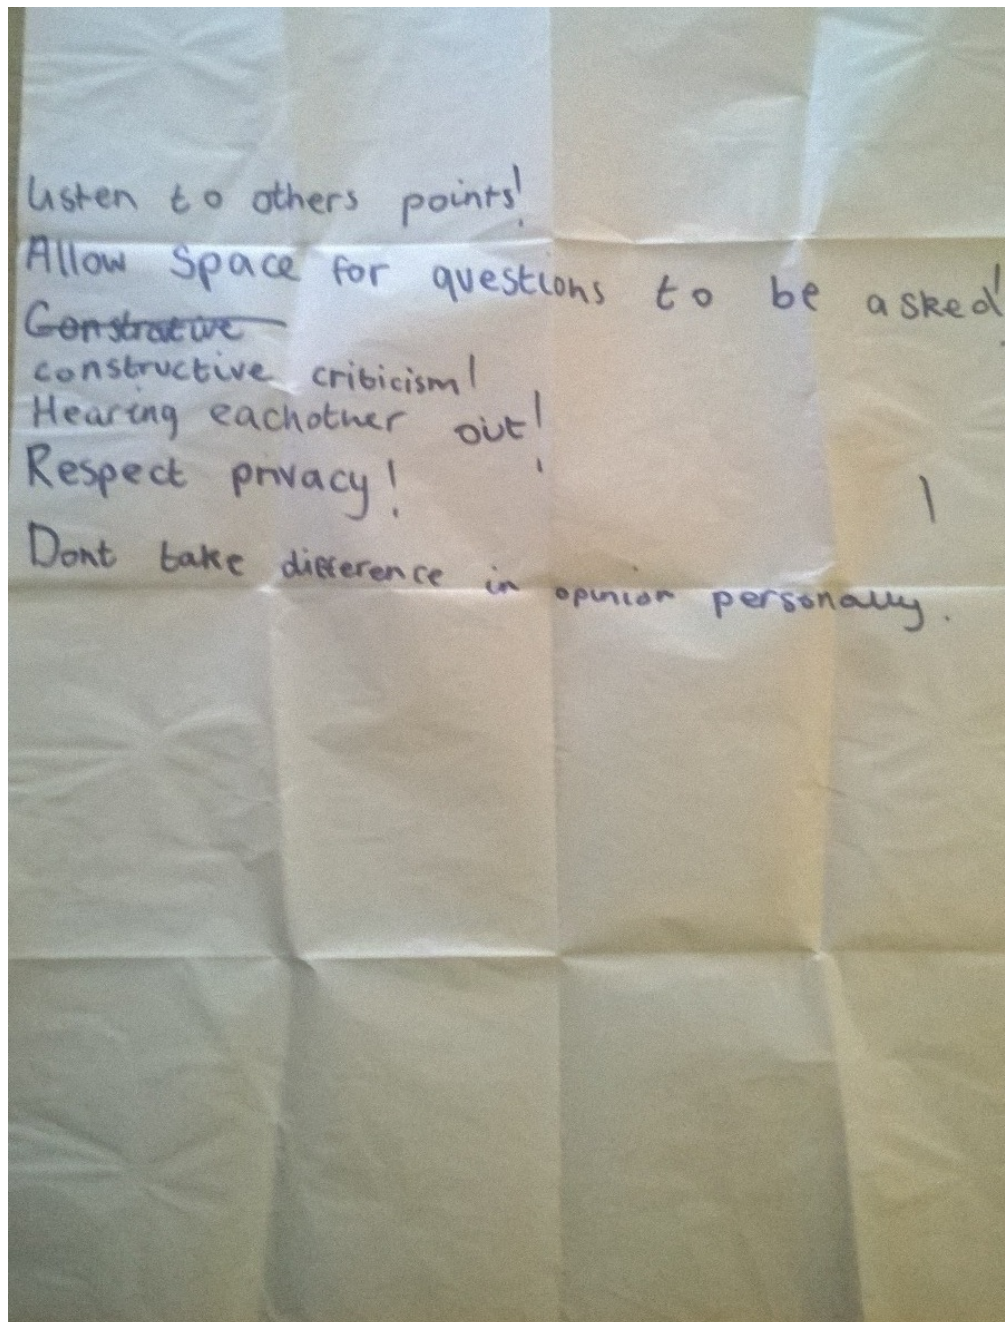 Listen to others points!
Allow space for questions to be asked!
Constrative
constructive criticism!
Hearing eachother out!
Respect privacy!
Dont take difference in opinion personally.